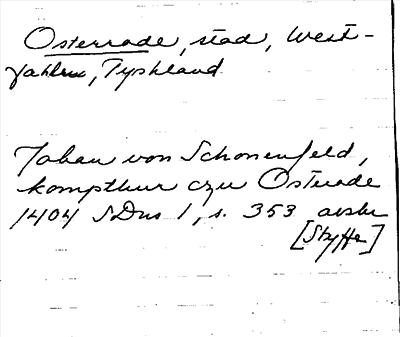 Osterrode, stad, West-
fahlen, Tyskland
Johan von Schonenfeld,
kompthur czu Osterode
1404 SDns 1, s. 353 avskr
[Styffe]